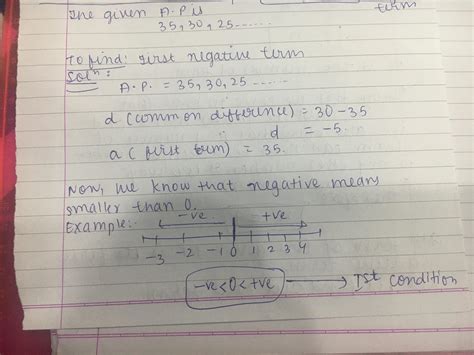 The given A.P is
term
35, 30, 25......
To find: First negative term
Solⁿ:
A.P. = 35, 30, 25......
d (common difference) = 30 - 35
d = -5.
a (first term) = 35.
Now, we know that negative means
smaller than 0.
Example:- -ve +ve
-3 -2 -1 0 1 2 3 4
-ve < 0 < +ve → Ist condition